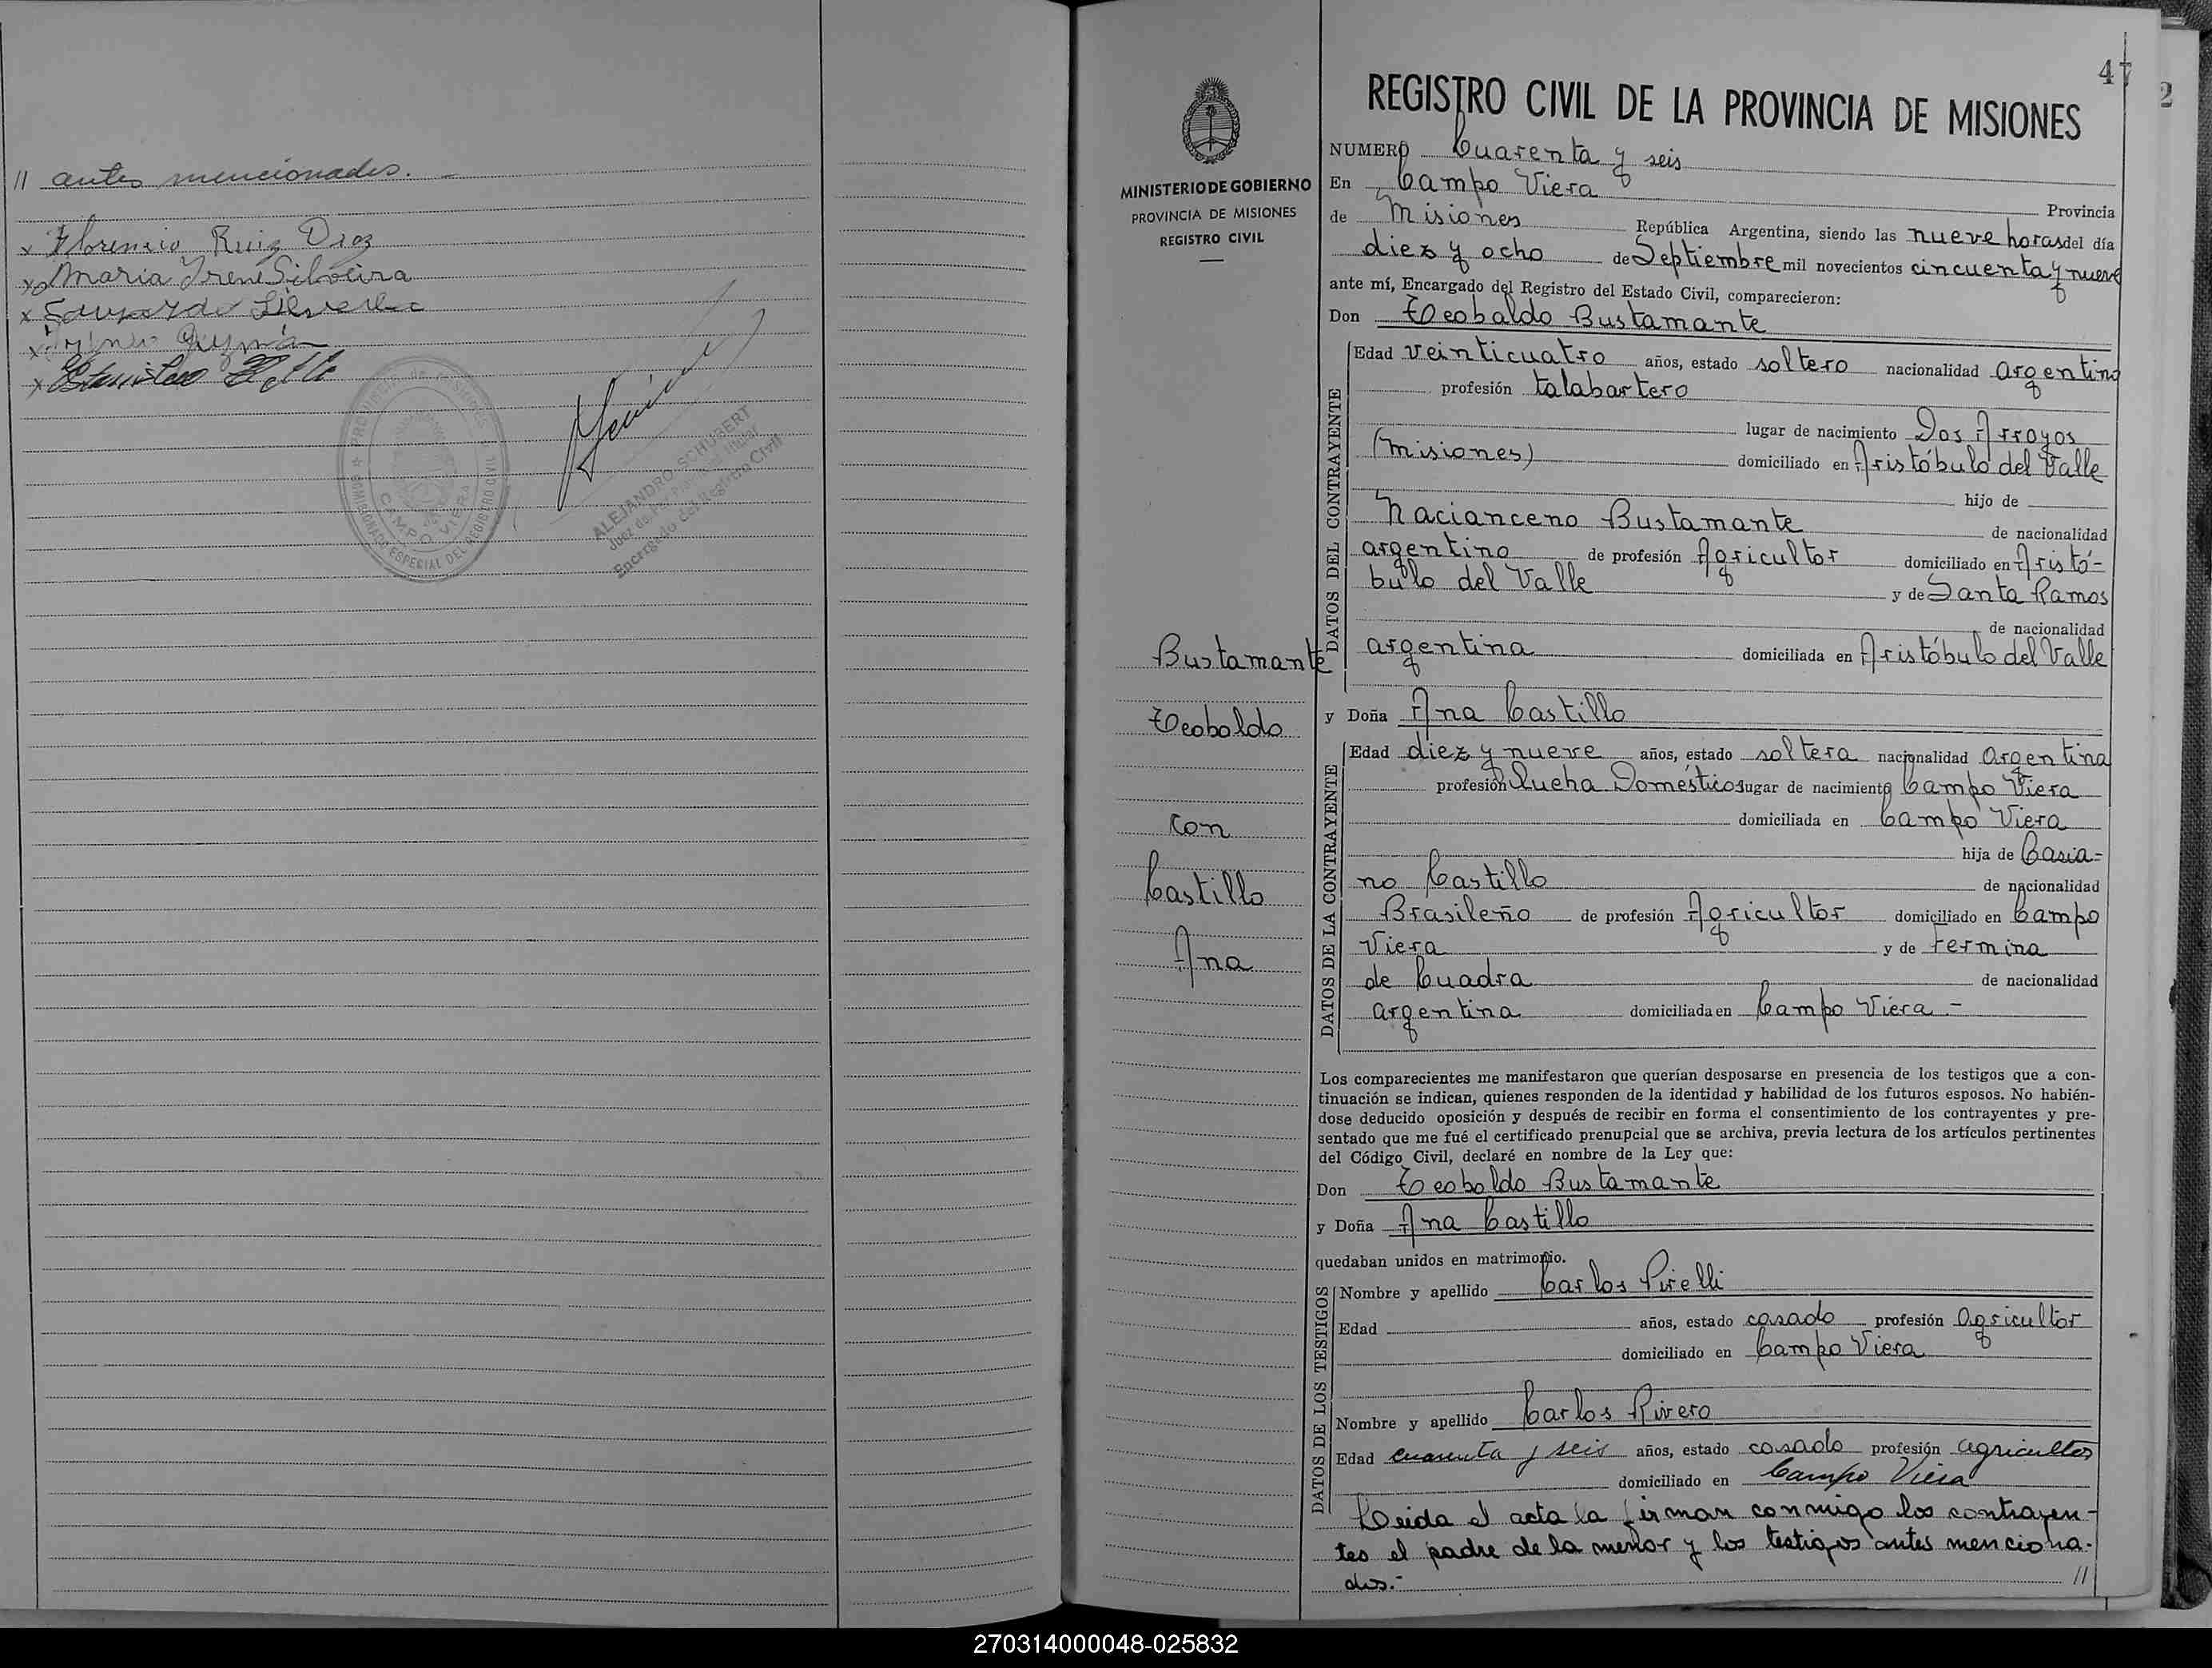 // antes mencionados. -
x Florencio Ruiz Diaz
x Maria Irene Silveira
x Eduardo Silveira
x Guzmán
x Estanislao
CAMPO VIERA
COMISIONADO ESPECIAL DEL REGISTRO CIVIL
ALEJANDRO SCHUBERT
Juez de Paz Titular
Encargado del Registro Civil
47
2
MINISTERIO DE GOBIERNO
PROVINCIA DE MISIONES
REGISTRO CIVIL
Bustamante
Teobaldo
con
Castillo
Ana
REGISTRO CIVIL DE LA PROVINCIA DE MISIONES
NUMERO Cuarenta y seis
En Campo Viera Provincia
de Misiones República Argentina, siendo las nueve horas del día
diez y ocho de Septiembre mil novecientos cincuenta y nueve
ante mí, Encargado del Registro del Estado Civil, comparecieron:
Don Teobaldo Bustamante
DATOS DEL CONTRAYENTE
Edad veinticuatro años, estado soltero nacionalidad argentino
profesión talabartero
lugar de nacimiento Dos Arroyos
(Misiones) domiciliado en Aristóbulo del Valle
hijo de
Nacianceno Bustamante de nacionalidad
argentino de profesión Agricultor domiciliado en Aristó-
bulo del Valle y de Santa Ramos
de nacionalidad
argentina domiciliada en Aristóbulo del Valle
y Doña Ana Castillo
DATOS DE LA CONTRAYENTE
Edad diez y nueve años, estado soltera nacionalidad argentina
profesión Queha. Domésticos lugar de nacimiento Campo Viera
domiciliada en Campo Viera
hija de Casia=
no Castillo de nacionalidad
Brasileño de profesión Agricultor domiciliado en Campo
Viera y de Fermina
de Cuadra de nacionalidad
argentina domiciliada en Campo Viera -
Los comparecientes me manifestaron que querían desposarse en presencia de los testigos que a con-
tinuación se indican, quienes responden de la identidad y habilidad de los futuros esposos. No habién-
dose deducido oposición y después de recibir en forma el consentimiento de los contrayentes y pre-
sentado que me fué el certificado prenupcial que se archiva, previa lectura de los artículos pertinentes
del Código Civil, declaré en nombre de la Ley que:
Don Teobaldo Bustamante
y Doña Ana Castillo
quedaban unidos en matrimonio.
DATOS DE LOS TESTIGOS
Nombre y apellido Carlos Pirelli
Edad años, estado casado profesión agricultor
domiciliado en Campo Viera
Nombre y apellido Carlos Rivero
Edad cuarenta y seis años, estado casado profesión agricultor
domiciliado en Campo Viera
Leida el acta la firman conmigo los contrayen-
tes el padre de la menor y los testigos antes menciona-
dos.- //
270314000048-025832